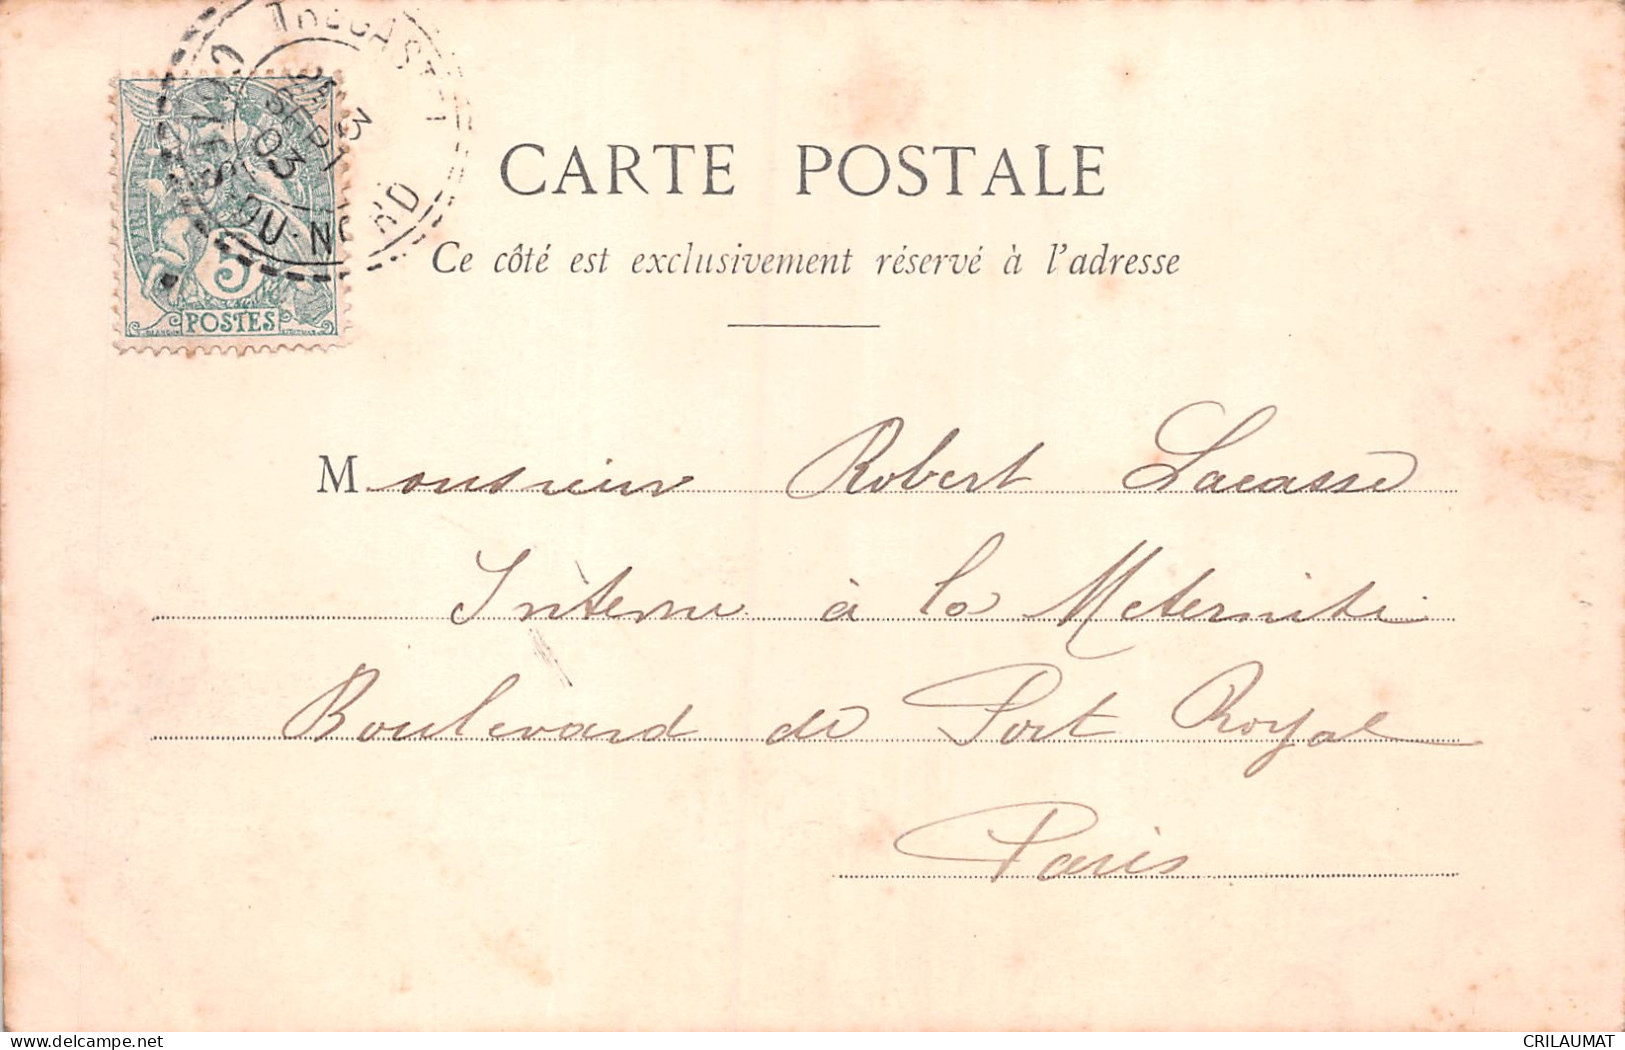 TREGASTEL
CÔTES DU NORD
3
SEPT
03
5
POSTES
CARTE POSTALE
Ce côté est exclusivement réservé à l'adresse
Monsieur Robert Lacasse
Interne à la Maternité
Boulevard de Port Royal
Paris
CRILAUMAT